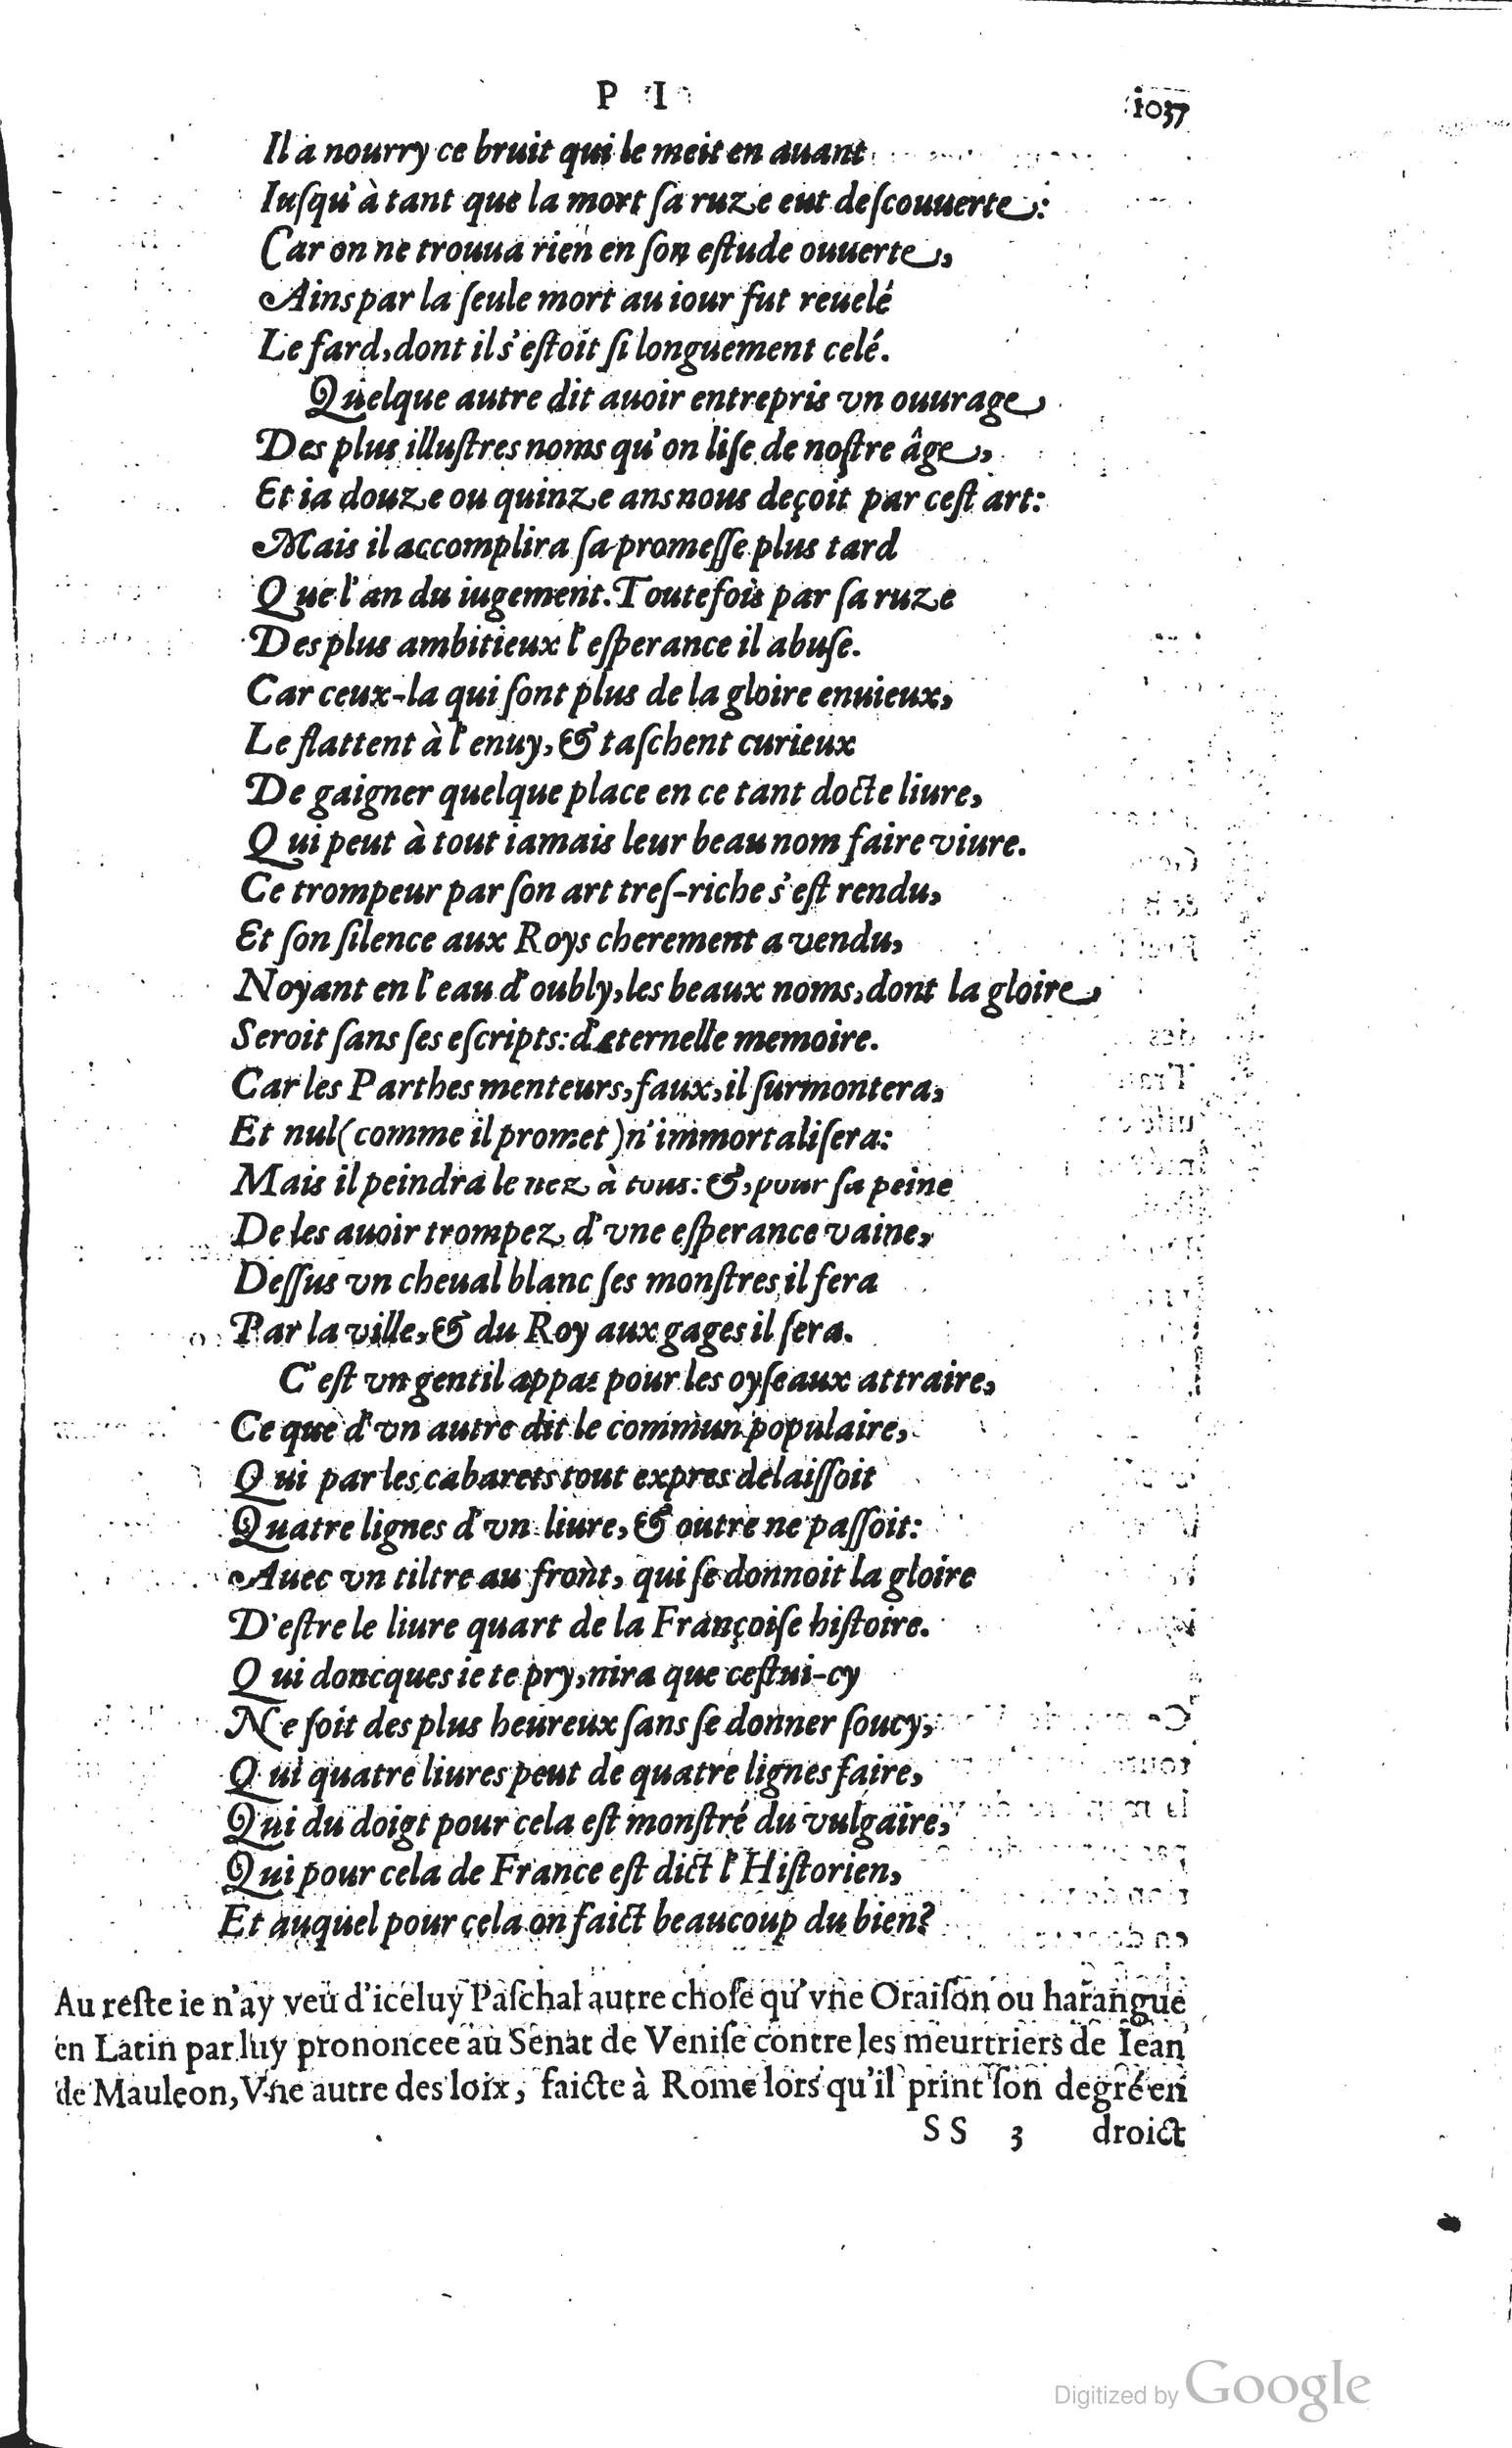 P I
1037
Il a nourry ce bruit qui le meit en auant
Iuſqu'à tant que la mort ſa ruze eut deſcouuerte:
Car on ne trouua rien en ſon eſtude ouuerte,
Ains par la ſeule mort au iour fut reuelé
Le fard, dont il s'eſtoit ſi longuement celé.
Quelque autre dit auoir entrepris vn ouurage
Des plus illuſtres noms qu'on liſe de noſtre âge,
Et ia douze ou quinze ans nous deçoit par ceſt art:
Mais il accomplira ſa promeſſe plus tard
Que l'an du iugement. Toutefois par ſa ruze
Des plus ambitieux l'eſperance il abuſe.
Car ceux-la qui ſont plus de la gloire enuieux,
Le flattent à l'enuy, & taſchent curieux
De gaigner quelque place en ce tant docte liure,
Qui peut à tout iamais leur beau nom faire viure.
Ce trompeur par ſon art treſ-riche s'eſt rendu,
Et ſon ſilence aux Roys cherement a vendu,
Noyant en l'eau d'oubly, les beaux noms, dont la gloire
Seroit ſans ſes eſcripts: d'eternelle memoire.
Car les Parthes menteurs, faux, il ſurmontera,
Et nul (comme il promet) n'immortaliſera:
Mais il peindra le nez à tous: &, pour ſa peine
De les auoir trompez d'vne eſperance vaine,
Deſſus vn cheual blanc ſes monſtres il fera
Par la ville, & du Roy aux gages il ſera.
C'eſt vn gentil appat pour les oyſeaux attraire,
Ce que d'vn autre dit le commun populaire,
Qui par les cabarets tout expres delaiſſoit
Quatre lignes d'vn liure, & outre ne paſſoit:
Auec vn tiltre au front, qui ſe donnoit la gloire
D'eſtre le liure quart de la Françoiſe hiſtoire.
Qui doncques ie te pry, nira que ceſtui-cy
Ne ſoit des plus heureux ſans ſe donner ſoucy,
Qui quatre liures peut de quatre lignes faire,
Qui du doigt pour cela eſt monſtré du vulgaire,
Qui pour cela de France eſt dict l'Hiſtorien,
Et auquel pour cela on faict beaucoup du bien?
Au reſte ie n'ay veu d'iceluy Paſchal autre choſe qu'vne Oraiſon ou harangue
en Latin par luy prononcee au Senat de Veniſe contre les meurtriers de Iean
de Mauleon, Vne autre des loix, faicte à Rome lors qu'il print ſon degré en
SS 3 droict
Digitized by Google